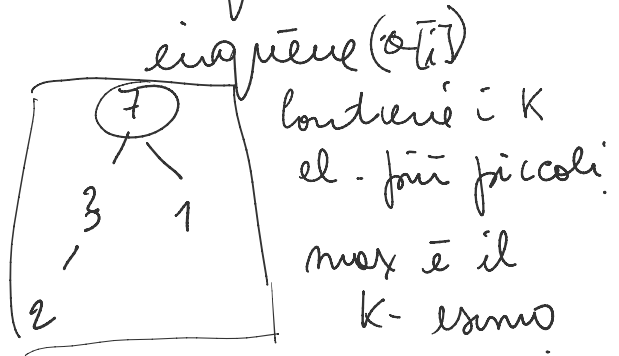 enqueue(a[i])
7
3 1
2
contiene i K
el. più piccoli
max è il
K-esimo